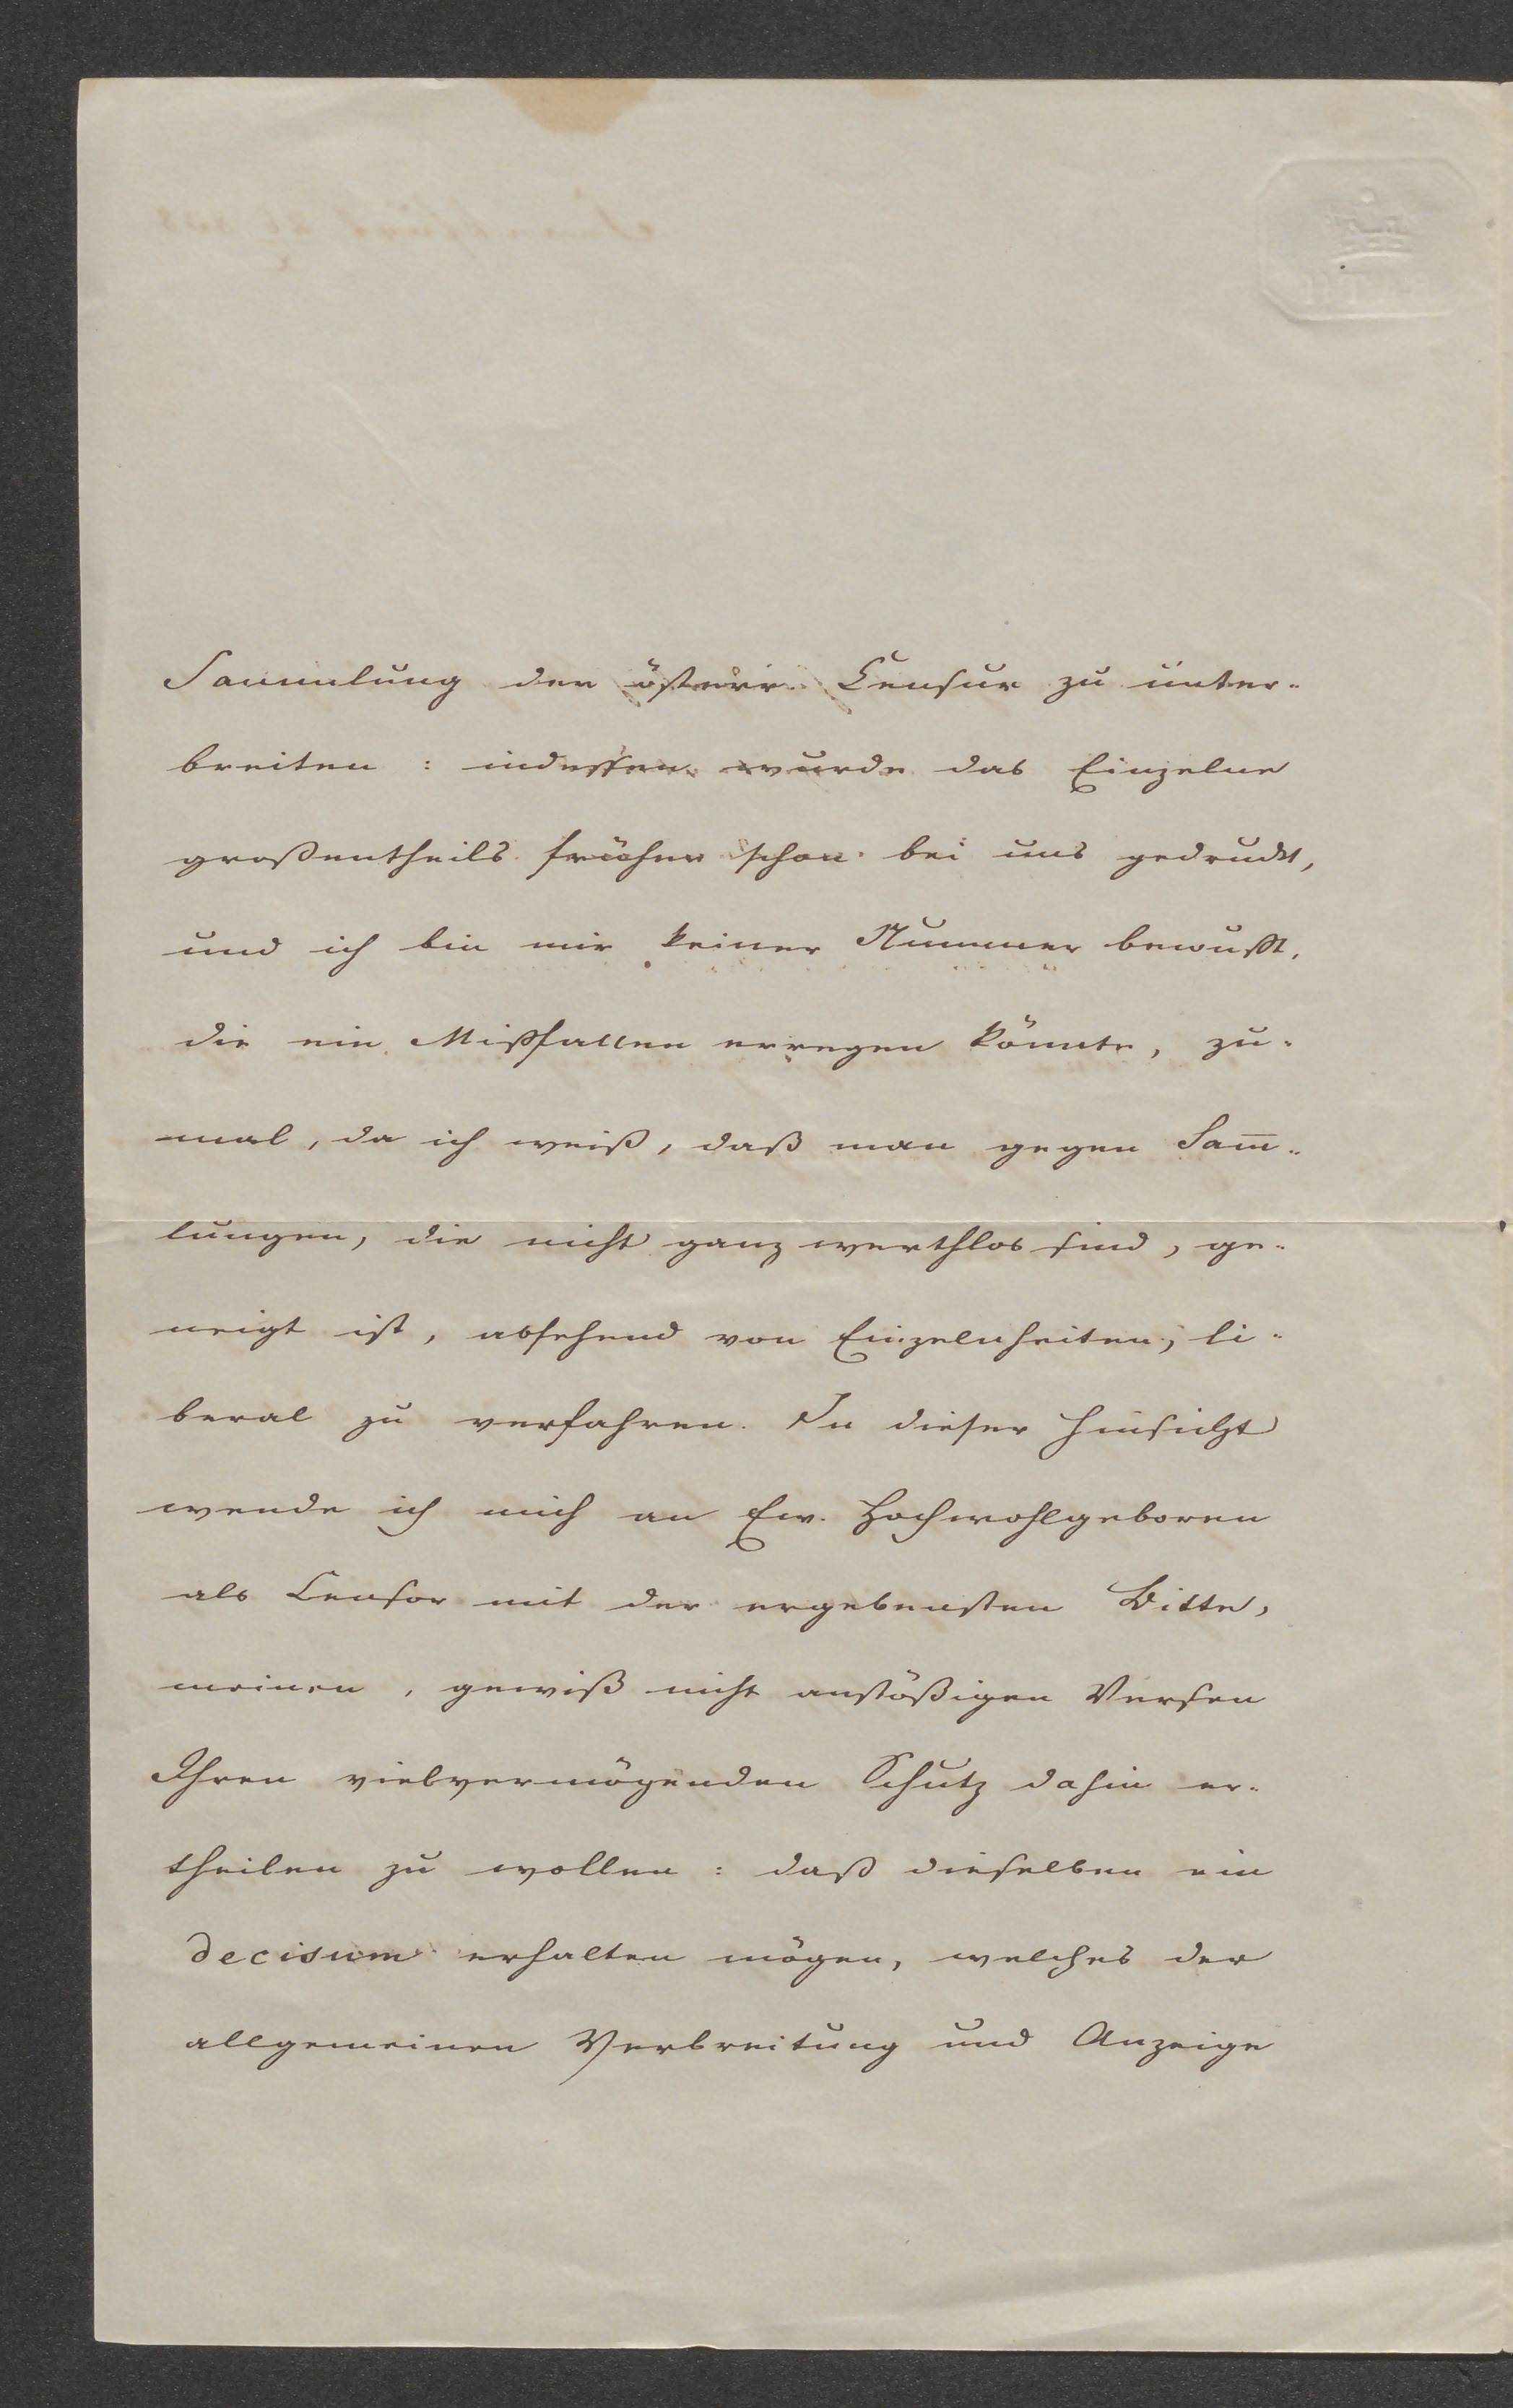 Sammlung der österr. Censur zu unter-
breiten : indessen wurde das Einzelne
großentheils früher schon bei uns gedruckt,
und ich bin mir keiner Nummer bewußt,
die ein Mißfallen erregen könnte, zu-
mal, da ich weiß, daß man gegen Sam̅-
lungen, die nicht ganz werthlos sind, ge-
neigt ist, absehend von Einzelnheiten, li-
beral zu verfahren. In dieser Hinsicht
wende ich mich an Ew. Hochwohlgeboren
als Censor mit der ergebensten Bitte,
meinen, gewiß nicht anstößigen Versen
Ihren vielvermögenden Schutz dahin er-
theilen zu wollen : daß dieselben ein
decisum erhalten mögen, welches der
allgemeinen Verbreitung und Anzeige